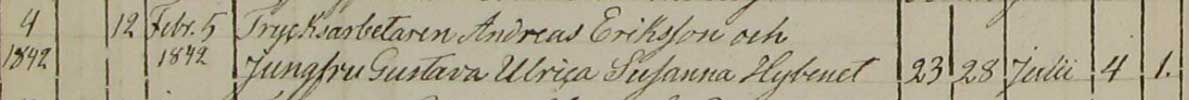 4 12 Febr. 5 Trycksarbetaren Andreas Eriksson och
1842 1842 Jungfru Gustava Ulrica Susanna Hybenet 23 28 Julii 4 1.